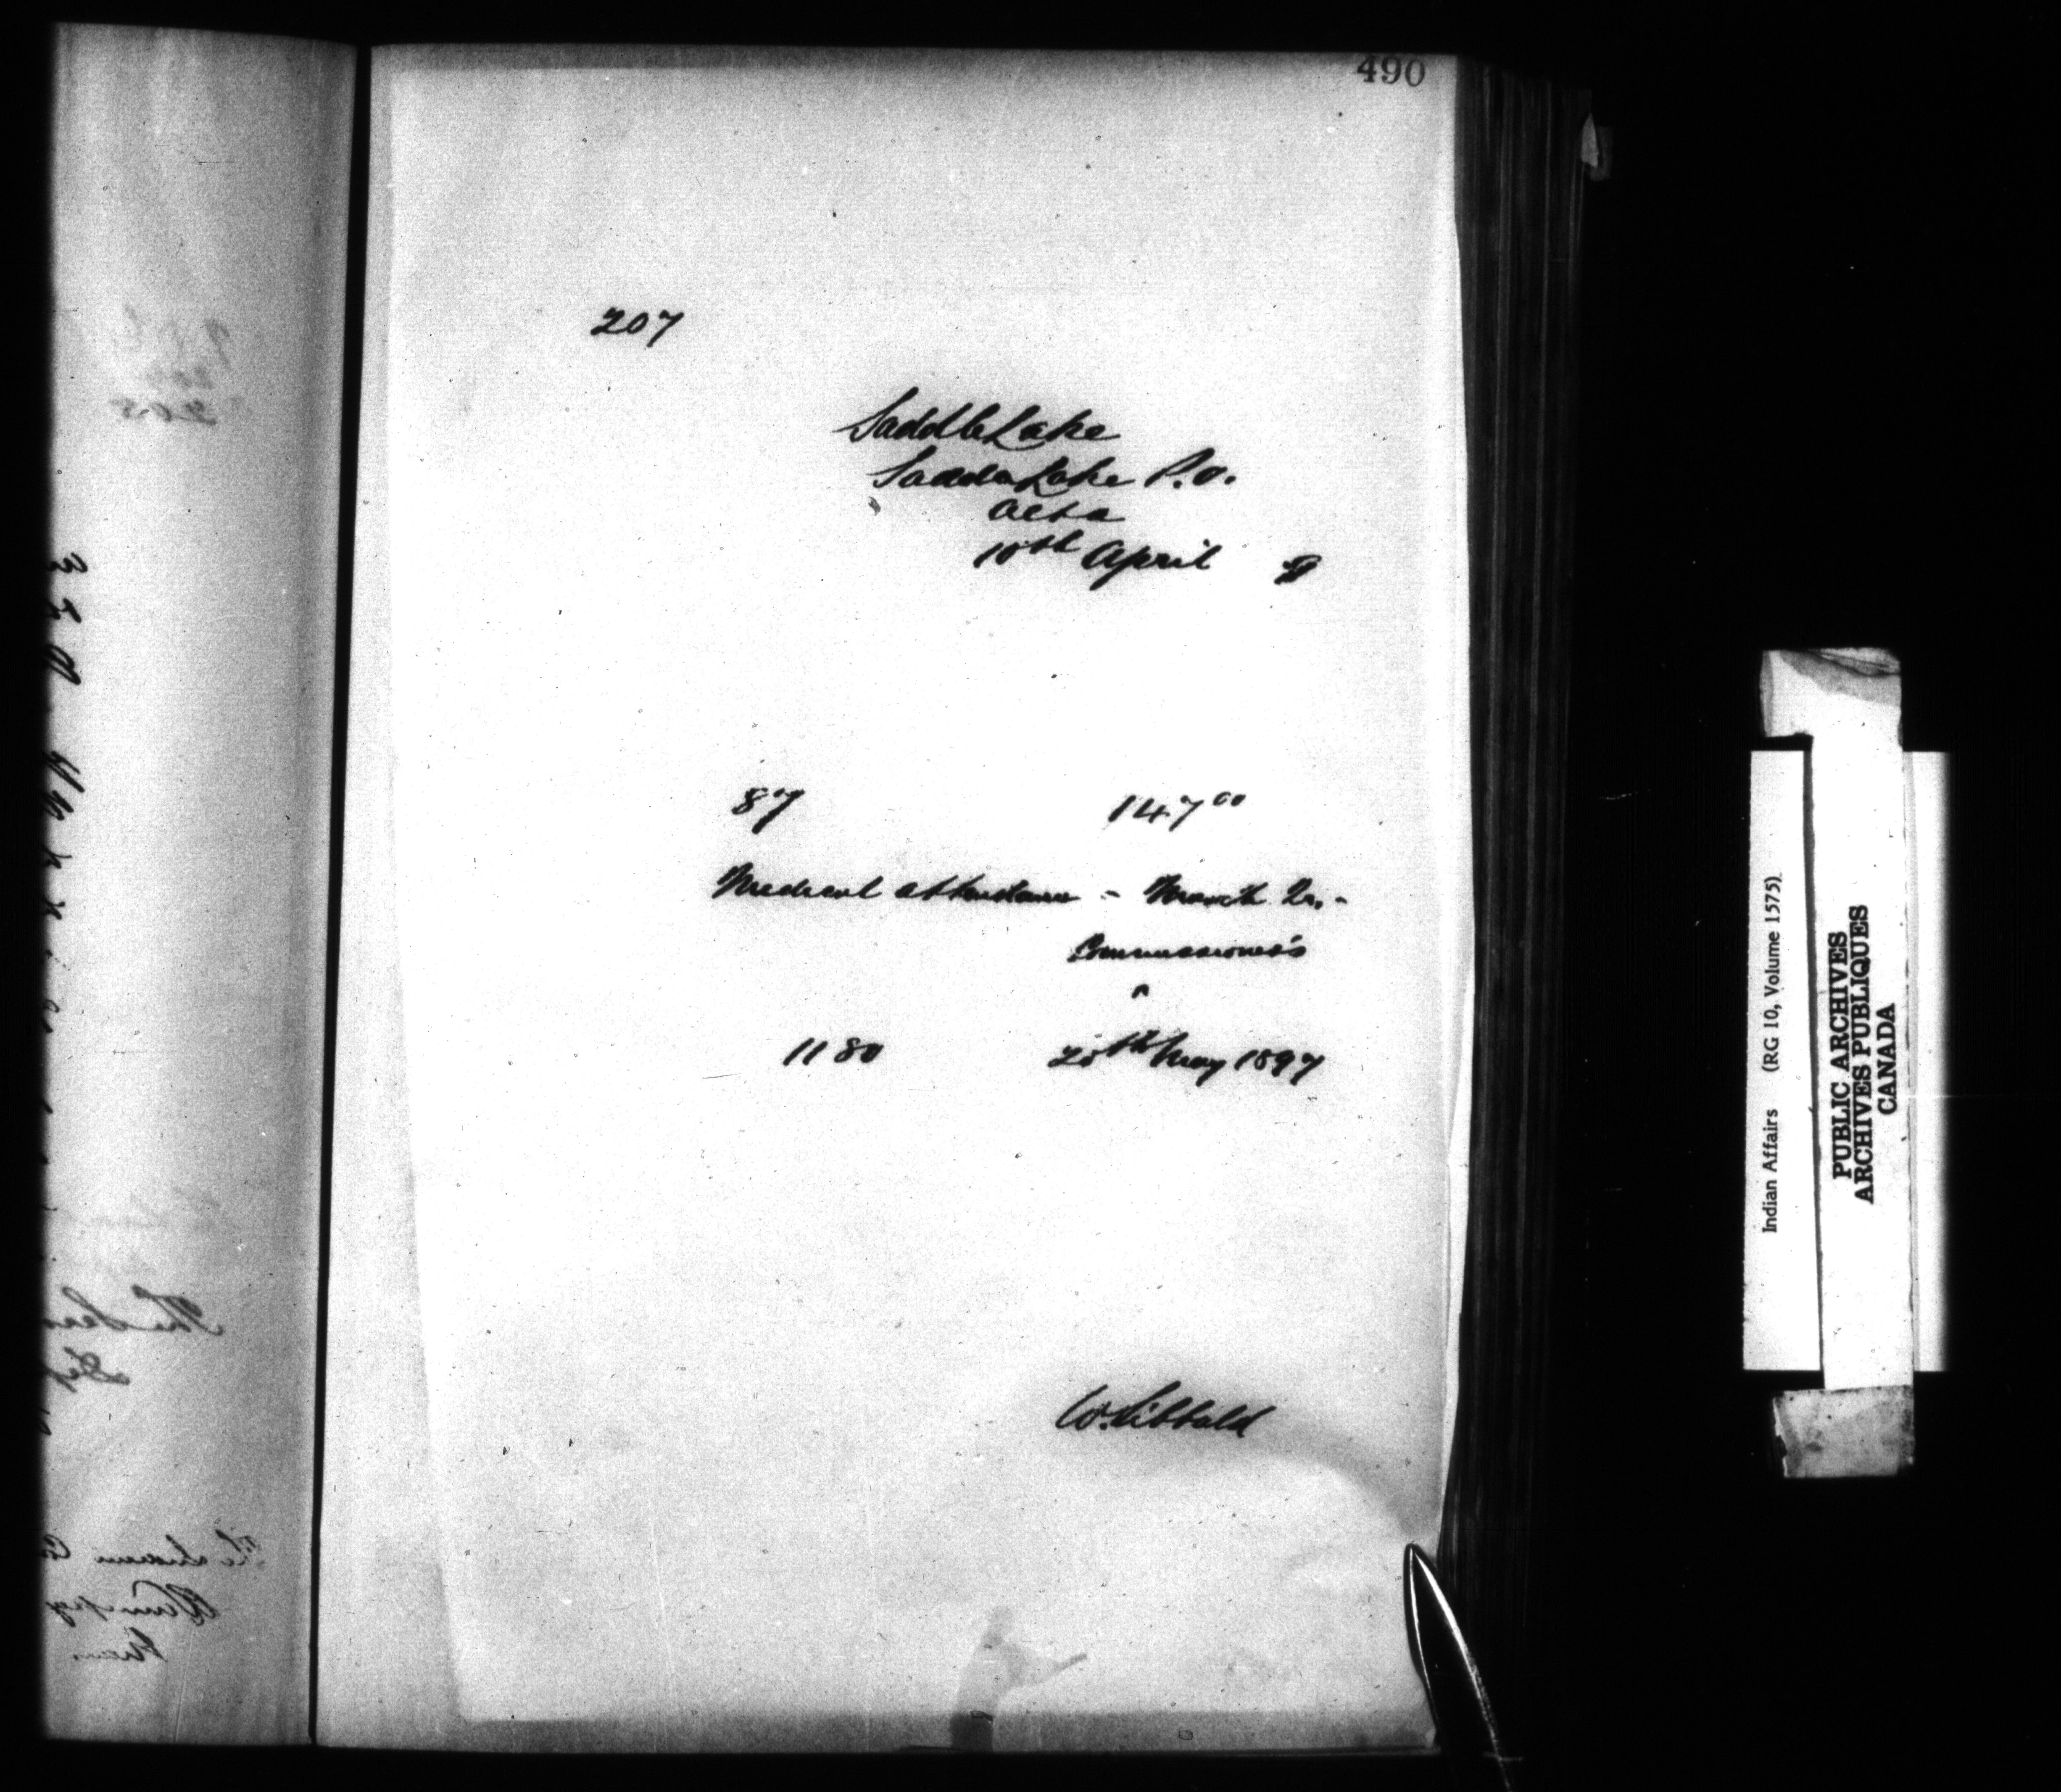 490
207
Saddle Lake
Saddle Lake P.O.
Alta
10th April
87 147 00
Medical attendance - March Qr. -
Commissioner's
1180 20th May 1897
W. Sibbald
Indian Affairs (RG 10, Volume 1575)
PUBLIC ARCHIVES
ARCHIVES PUBLIQUES
CANADA